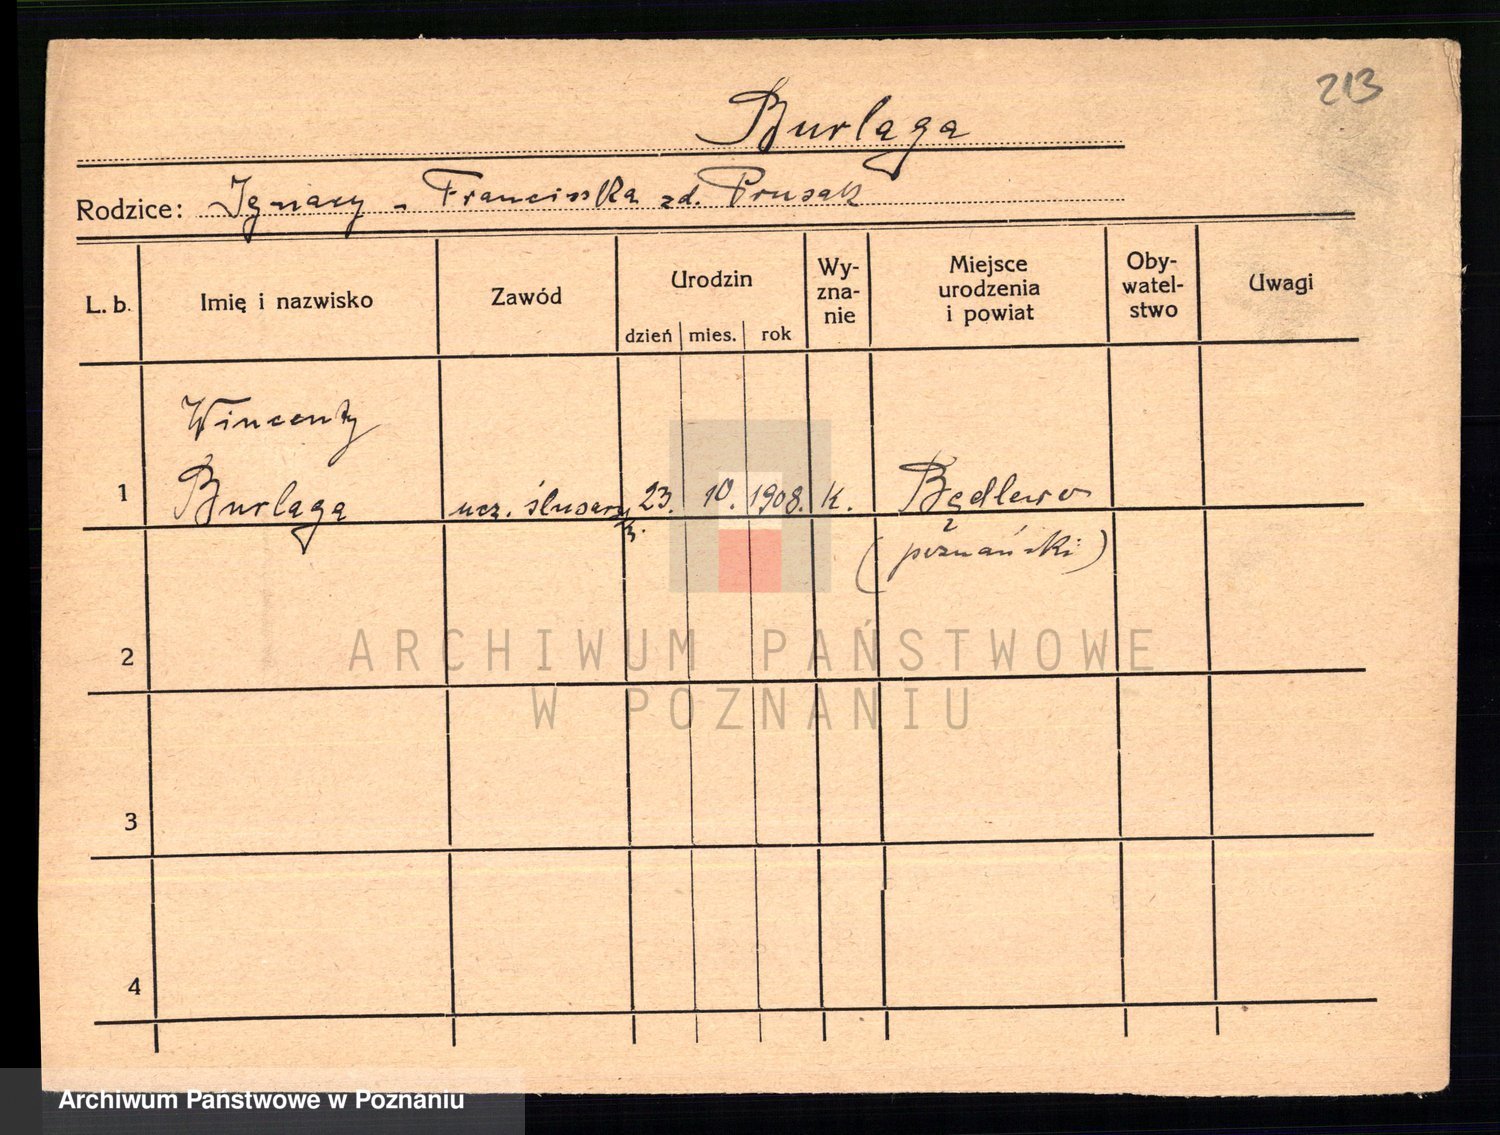 213
Burlaga
Rodzice: Ignacy - Franciszka zd. Prusak
L. b. Imię i nazwisko Zawód Urodzin dzień mies. rok Wy-zna-nie Miejsce urodzenia i powiat Oby-watel-stwo Uwagi
Wincenty
1 Burlaga ucz. ślusarz 23. 10. 1908. k. Będlewo
(poznański)
2
3
4
ARCHIWUM PAŃSTWOWE
W POZNANIU
Archiwum Państwowe w Poznaniu